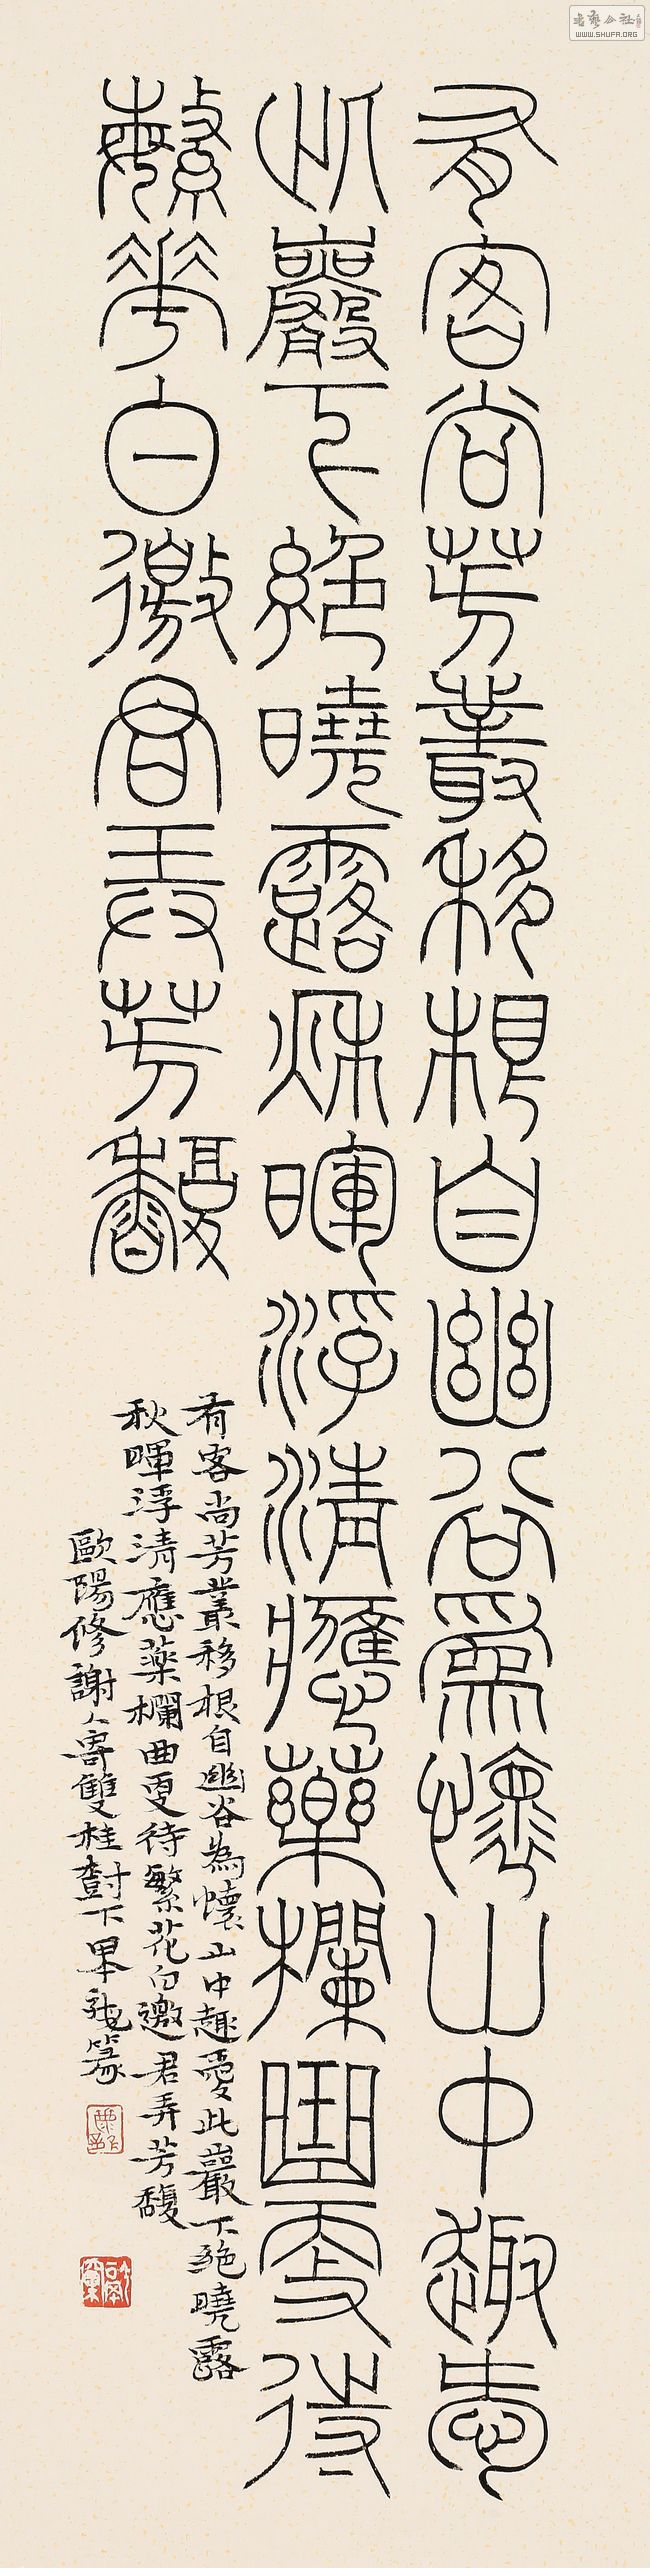 有客尚芳叢移根自幽谷為懷山中趣愛
此巖下絕曉露秋暉浮清應藥欄曲更待
繁華白邀君弄芳馥
有客尚芳叢移根自幽谷為懷山中趣愛此巖下絕曉露
秋暉浮清應藥欄曲更待繁花白邀君弄芳馥
歐陽修謝人寄雙桂樹下篆
书艺公社
WWW.SHUFA.ORG